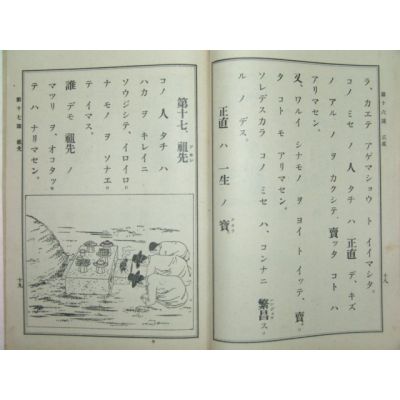 ラ、カエテ アゲマショウ ト イイマシタ。
コノ ミセノ 人タチ ハ 正直 デ、キズ
ノ アル ノ ヲ カクシテ、賣ッタ コト ハ
アリマセン。
又、ワルイ シナモノ ヲ ヨイ ト イッテ、賣ッ
タ コト モ アリマセン。
ソレデスカラ コノ ミセ ハ、コンナニ 繁昌 ス
ル ノ デス。
正直 ハ 一生 ノ 寶
十八
第十七、祖先
コノ 人タチ ハ
ハカ ヲ キレイニ
ソウジシテ、イロイロ
ナ モノ ヲ ソナエ
テ イマス。
誰 デモ 祖先 ノ
マツリ ヲ オコタッ
テ ハ ナリマセン。
第十七課 祖先
十九